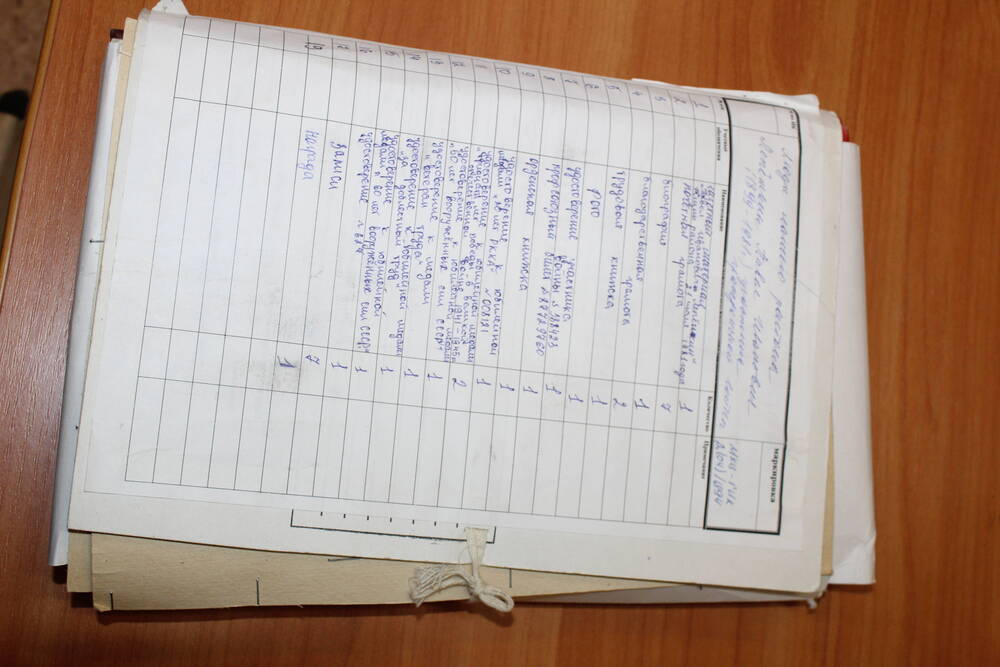 Люди нашего района
маркировка
Лепёшкин Павел Иванович
(1899-1981г.) участник
гражданской войны
МКЦ-ГИК
Учетные обозначения
Наименование
Количество
Примечание
1 газетный материал
"Павел Иванович Лепёшкин"
района 21 июля 1981 года 1
2 почётная грамота 7
3 биография 1
4 благодарственная
грамота 2
5 трудовая книжка 1
6 фото 1
7 удостоверение участника
войны 1
8 профсоюзный билет 1
9 орденская книжка 1
10 удостоверение к юбилейной
медали "20 лет РККА" №008121 1
11 удостоверение к юбилейной медали
"Тридцать лет победы в великой
отечественной войне 1941-1945гг" 2
12 удостоверение к юбилейной медали
"60 лет вооружённых сил СССР" 1
13 удостоверение к медали
"ветеран труда" 1
14 удостоверение к юбилейной медали
"за доблестный труд" 1
15 удостоверение к юбилейной
медали " 60 лет вооружённых сил СССР" 1
16 удостоверение 1
17 записи 7
19 награда 1